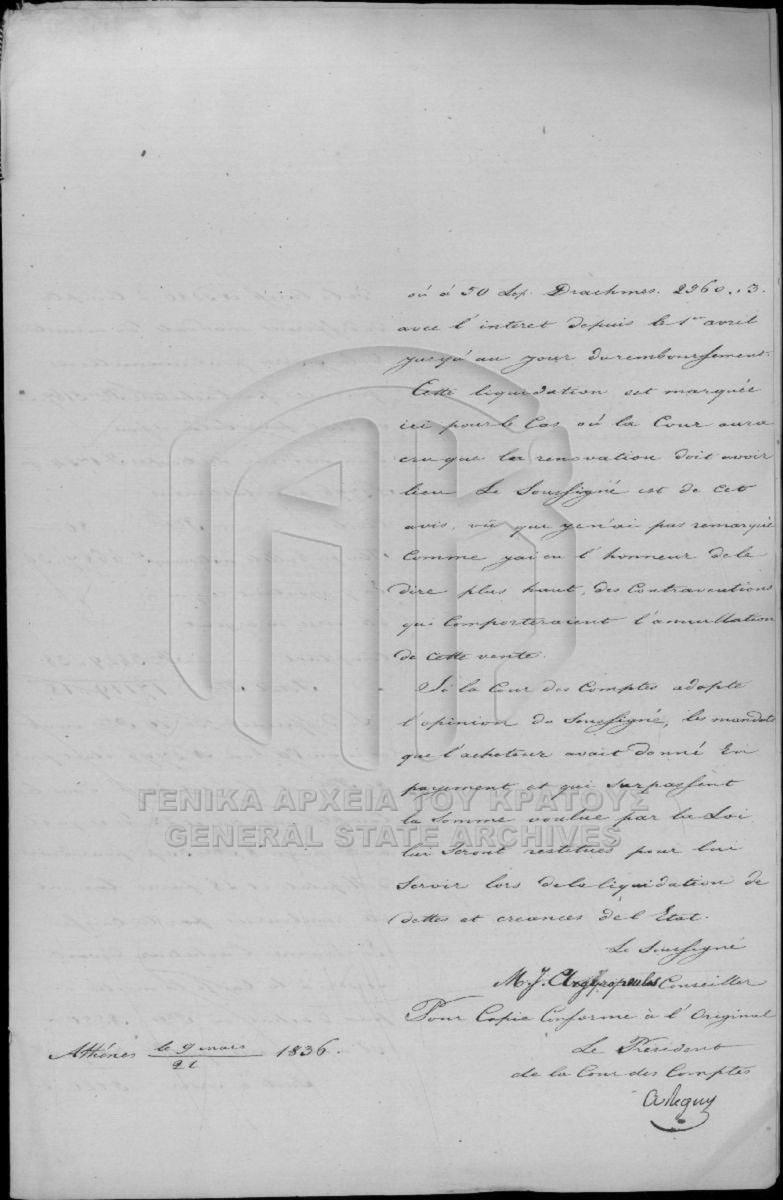 où à 50 Lep. Drachmes. 2360.,3.
avec l'interet depuis le 1er avril
jusqu'au jour du remboursement.
Cette liquidation est marquée
ici pour le Cas où la Cour aura
cru que la renovation doit avoir
lieu Le Soussigné est de Cet
avis, vû que je n'ai pas remarqué
Comme j'ai eu l'honneur de le
dire plus haut, des Contraventions
qui Comporteraient l'annullation
de cette vente.
Si la Cour des Comptes adopte
l'opinion du Soussigné, les mandats
que l'acheteur avait donné En
payement et qui Surpassent
la Somme voulue par la Loi
lui Seront restitués pour lui
Servir lors de la liquidation de
dettes et creances de l'Etat.
Le Soussigné
M. J. Argyropoulos Conseiller
Pour Copie Conforme à l'Original
Athénes le 9 mars / 21 1836.
Le Président
de la Cour des Comptes
ARegny
ΓΕΝΙΚΑ ΑΡΧΕΙΑ ΤΟΥ ΚΡΑΤΟΥΣ
GENERAL STATE ARCHIVES